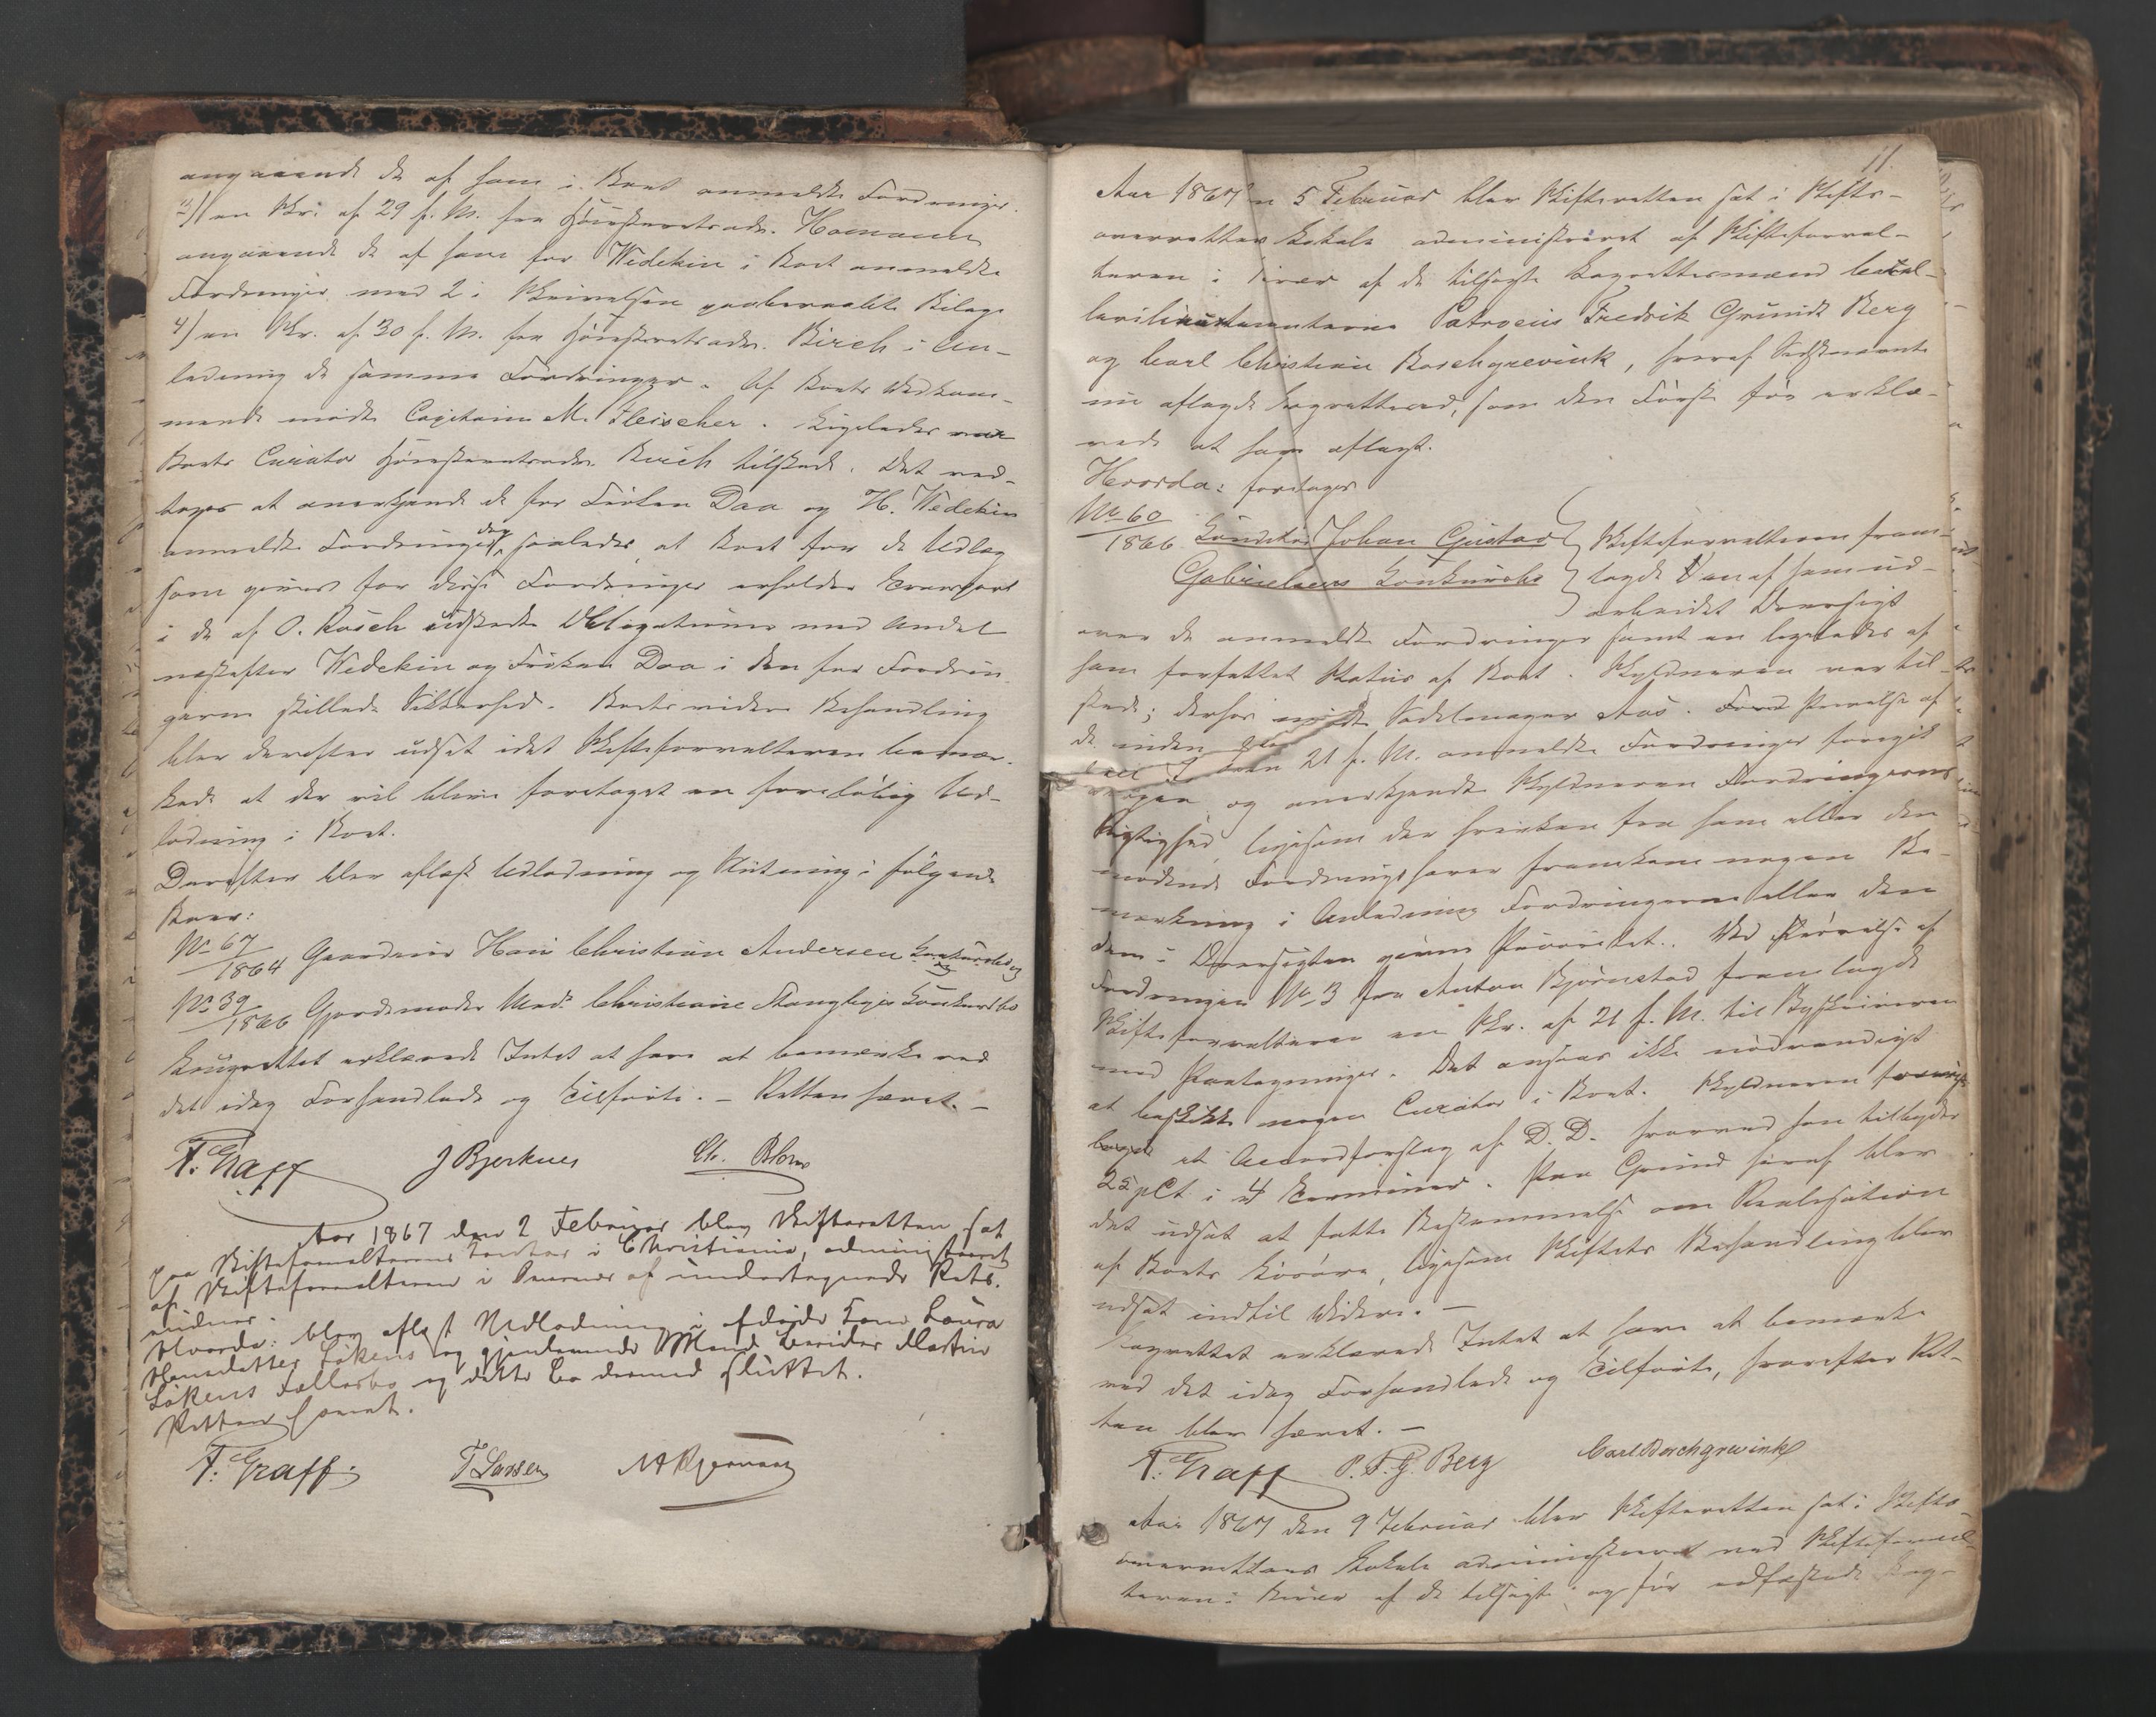 angaaende de af ham i Boet anmeldte Fordringer.
3) en Skr. af 29 f. M. fra Høiesteretsadv. Homann
angaaende de af ham for Wedekin i Boet anmeldte
Fordringer med 2 i Skrivelsen paaberaabte Bilage
4) en Skr. af 30 f. M. fra Høiesteretsadv. Birch i An-
ledning de samme Fordringer. Af Boets Vedkom-
mende mødte Capitain M. Fleischer. Ligeledes var
Boets Curator Høiesteretsadv. Birch tilstede. Det ved-
toges at anerkjende de for Frøken Daa og H. Wedekin
anmeldte Fordringer, saaledes, at Boet for de Udlæg
som gives for disse Fordringer erholder Transport
i de af O. Rusch udstedte Obligationer med Andel
næstefter Wedekin og Frøken Daa i den for Fordrin-
gerne stillede Sikkerhed. Boets videre Behandling
blev derefter udsat idet Skifteforvalteren bemær-
kede at der vil blive foretaget en foreløbig Ud-
lodning i Boet.
Derefter blev aflæst Udlodning og Slutning i følgende
Boer:
No 67/1864 Gaardeier Hans Christian Andersens Konkursbo og
No 39/1866 Gjordemoder Mad. Christiane Stangbyes Konkursbo
Laugrettet erklærede Intet at have at bemærke ved
det idag Forhandlede og Tilførte. – Retten hævet. –
F. Graff J Bjerknes Chr. Blom
Aar 1867 den 2 Februar blev Skifteretten sat
paa Skifteforvalterens Contor i Christiania, administreret
af Skifteforvalteren i Overvær af undertegnede Rets-
vidner.
Hvorda: blev aflæst Udlodning i afdøde Kone Laura
Hansdatter Løkens og gjenlevende Mand Berider Martin
Løkens Fællesbo og dette Bo dermed sluttet.
Retten hævet.
F. Graff. T Larsen
11.
Aar 1867 den 5 Februar blev Skifteretten sat i Stifts-
overrettens Lokale administreret af Skifteforval-
teren i Overvær af de tilsagte Laugrettesmænd Caval-
lerilieutenanterne Patroclus Fredrik Grundt Berg
og Carl Christian Borchgrevink, hvoraf Sidstnævnte
nu aflagde Laugretteed, som den Første før erklæ-
rede at have aflagt.
Hvorda: foretoges
No 60/1866 Johan Gustav
Gabrielsens Konkursbo
Skifteforvalteren frem-
lagde en af ham ud-
arbeidet Oversigt
over de anmeldte Fordringer samt en ligeledes af
ham forfattet Status af Boet. Skyldneren var til-
stede; derhos mødte Sadelmager Aas. Prøvelse af
de inden den 21 f. M. anmeldte Fordringer foregik
og anerkjendte Skyldneren Fordringernes
Rigtighed, ligesom der hverken fra ham eller den
mødende Fordringshaver fremkom nogen Be-
mærkning i Anledning Fordringerne eller den
dem i Oversigten givne Prioritet. Ved Prøvelse af
Fordringen No 3 fra Anton Bjørnstad fremlagde
Skifteforvalteren en Skr. af 21 f. M. til Byskriveren
med Paategninger. Det ansaaes ikke nødvendigt
at beskikke nogen Curator i Boet. Skyldneren frem-
lagde et Accordforslag af D. D. hvorved han tilbyder
25 pCt i 4 Terminer. Paa Grund heraf blev
det udsat at fatte Bestemmelse om Realisation
af Boets Løsøre, ligesom Skiftets Behandling blev
udsat indtil Videre. –
Laugrettet erklærede Intet at have at bemærke
ved det idag Forhandlede og Tilførte, hvorefter Ret-
ten blev hævet. –
F. Graff P. F. G. Berg Carl Borchgrevink
Aar 1867 den 9 Februar blev Skifteretten sat i Stifts-
overrettens Lokale administreret ved Skifteforval-
teren i Overvær af de tilsagte og før edfæstede Laug-